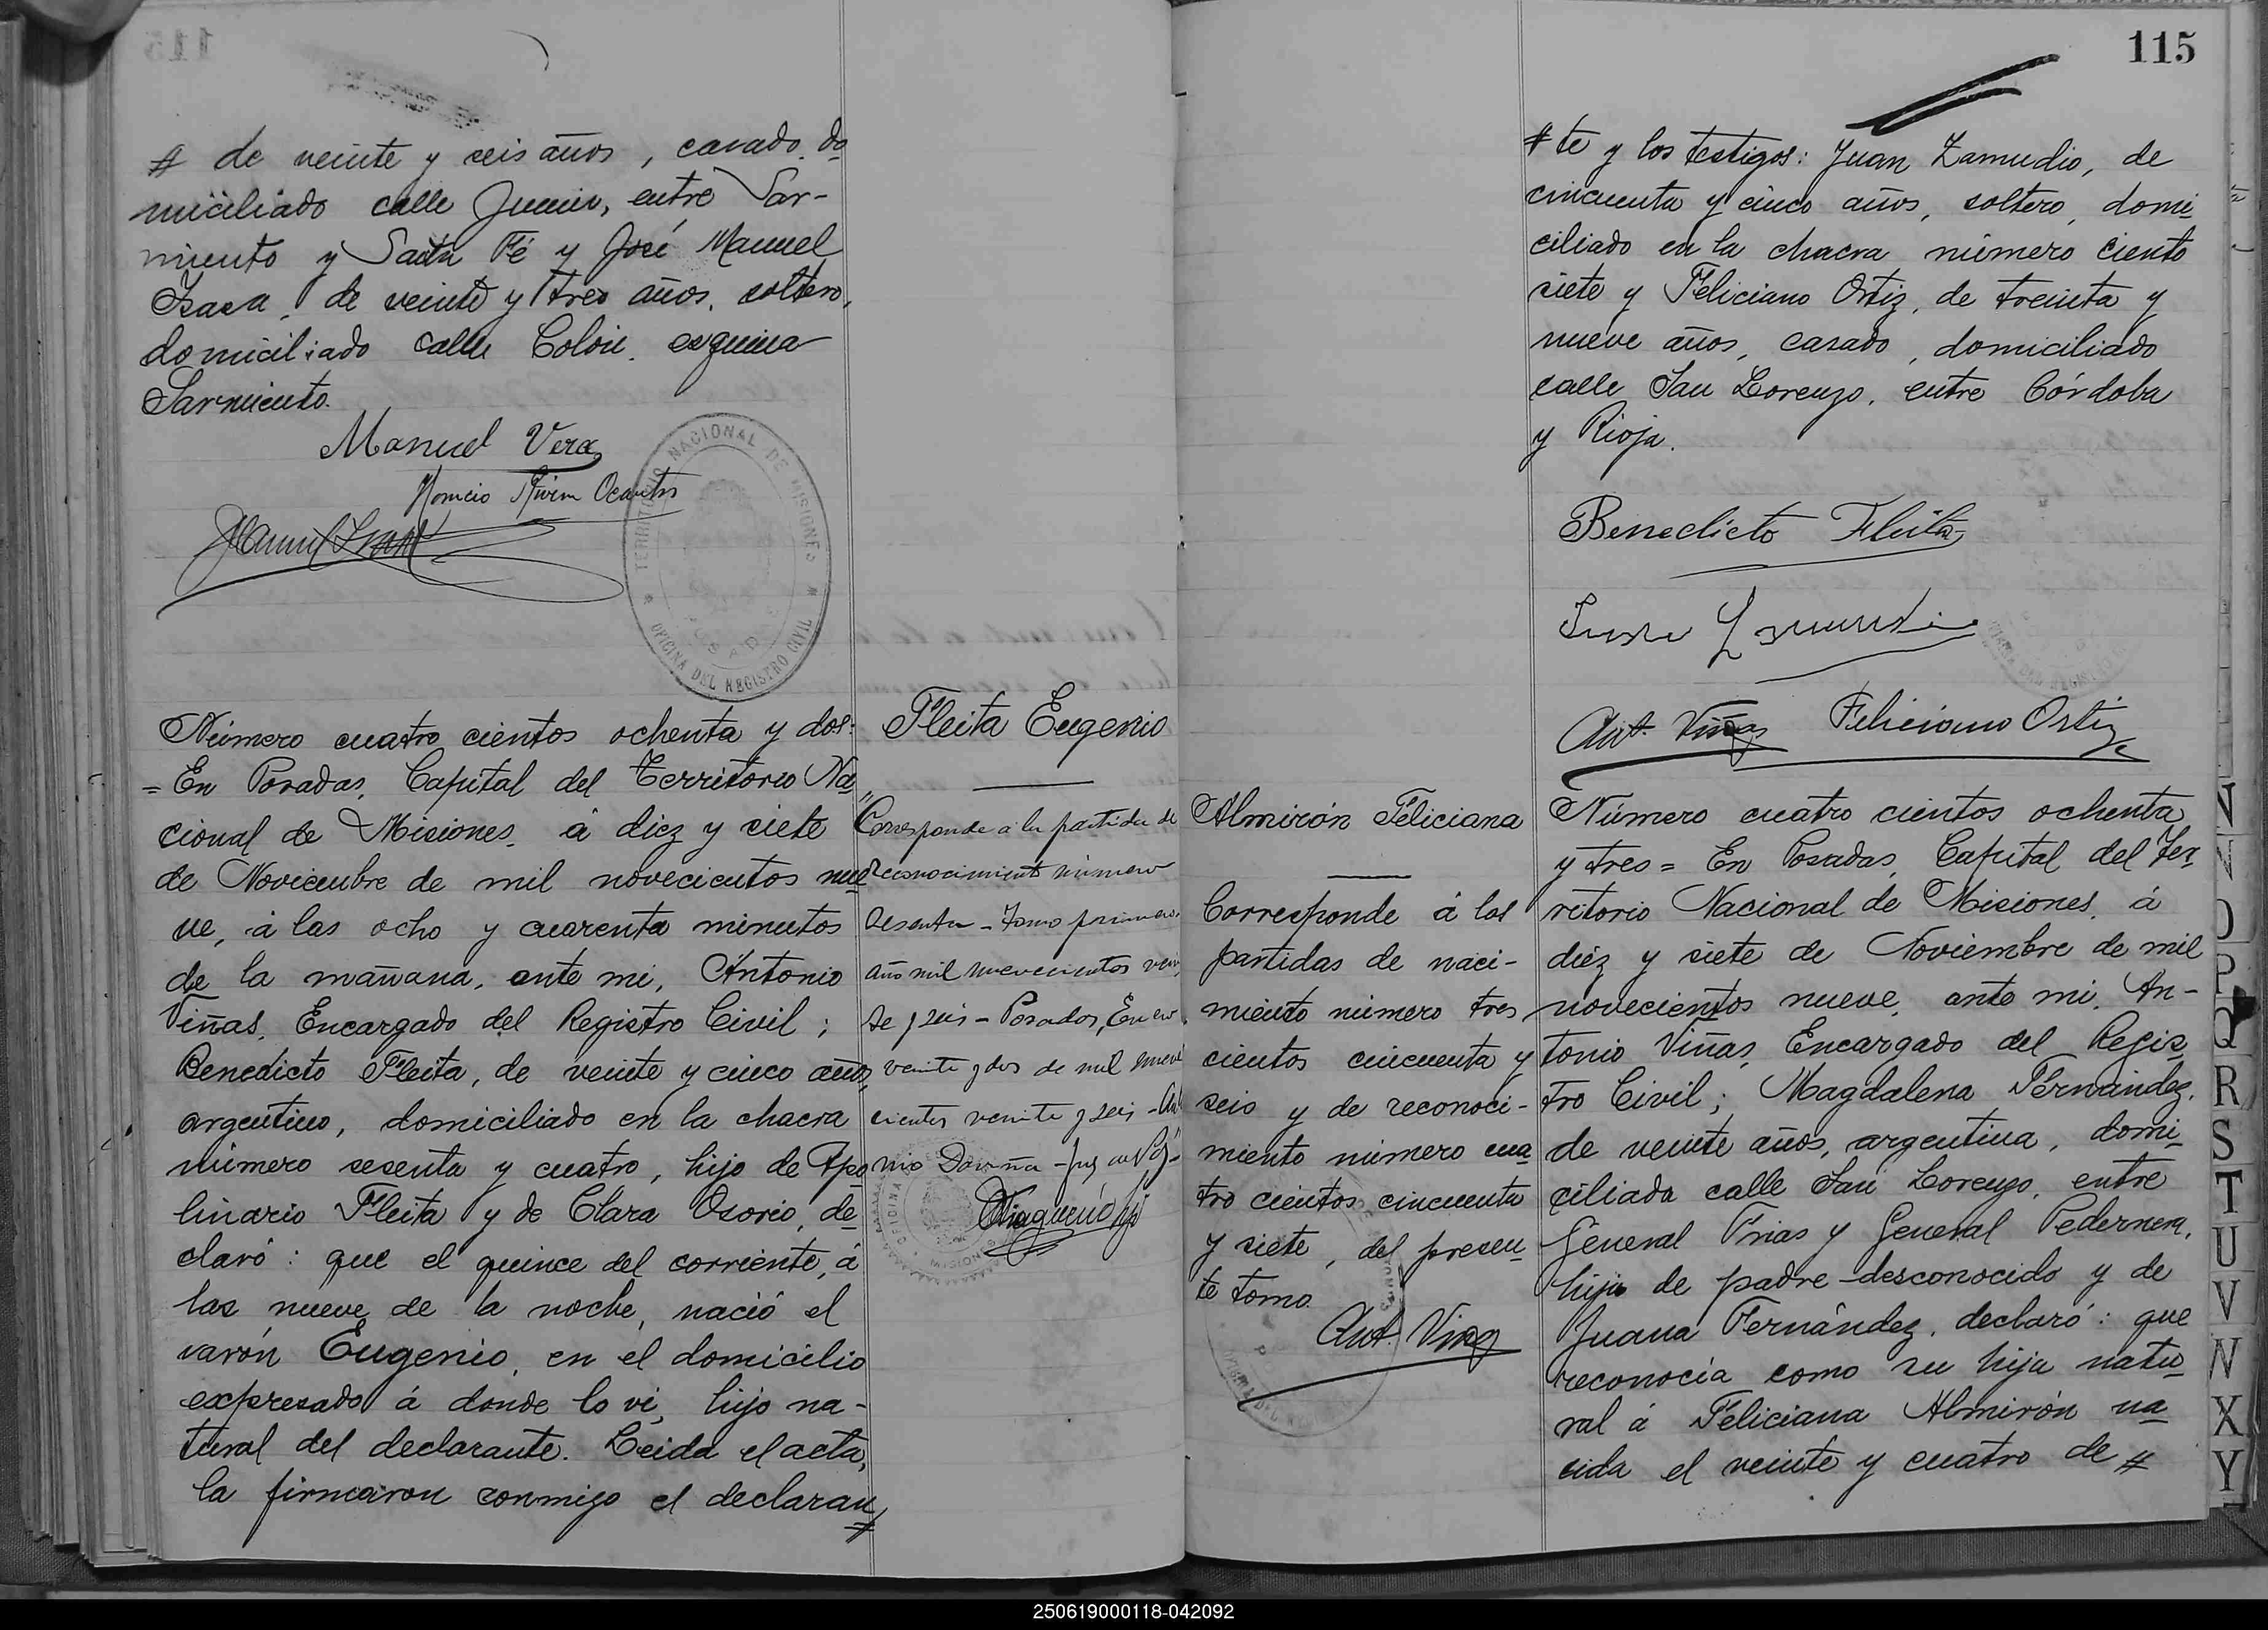 # de veinte y seis años, casado, do
miciliado calle Junin, entre Sar-
miento y Santa Fé y José Manuel
Isasa, de veinte y tres años, soltero,
domiciliado calle Colón, esquina
Sarmiento.
Manuel Vera
TERRITORIO NACIONAL DE MISIONES
OFICINA DEL REGISTRO CIVIL
Número cuatro cientos ochenta y dos:
= En Posadas, Capital del Territorio Na
cional de Misiones, á diez y siete
de Noviembre de mil novecientos nue
ve, á las ocho y cuarenta minutos
de la mañana, ante mi, Antonio
Viñas, Encargado del Registro Civil;
Benedicto Fleita, de veinte y cinco años,
argentino, domiciliado en la chacra
número sesenta y cuatro, hijo de Apo
linario Fleita y de Clara Osorio, de
claró: que el quince del corriente, á
las nueve de la noche, nació el
varón Eugenio, en el domicilio
expresado á donde lo vi, hijo na-
tural del declarante. Leida el acta,
la firmaron conmigo el declaran
#
Fleita Eugenio
"Corresponde a la partida de
Reconocimiento número
sesenta - Tomo primero,
año mil nuevecientos vein
te y seis - Posadas, Enero
veinte y dos de mil nueve
cientos veinte y seis -
115
# te y los testigos: Juan Zamudio, de
cincuenta y cinco años, soltero, domi
ciliado en la chacra número ciento
siete y Feliciano Ortiz, de treinta y
nueve años, casado, domiciliado
calle San Lorenzo, entre Córdoba
y Rioja.
Benedicto Fleita
Juan Zamudio
Ant. Viñas Feliciano Ortiz
Almirón Feliciana
Corresponde á las
partidas de naci-
miento número tres
cientos cincuenta y
seis y de reconoci-
miento número cua
tro cientos cincuenta
y siete, del presen
te tomo.
Ant. Viñas
Número cuatro cientos ochenta
y tres = En Posadas, Capital del Ter
ritorio Nacional de Misiones, á
diez y siete de Noviembre de mil
novecientos nueve, ante mi, An-
tonio Viñas, Encargado del Regis
tro Civil; Magdalena Fernández,
de veinte años, argentina, domi
ciliada calle San Lorenzo, entre
General Frias y General Pedernera,
hija de padre desconocido y de
Juana Fernández, declaró: que
reconocía como su hija natu
ral á Feliciana Almirón na
cida el veinte y cuatro de #
N
O
P
Q
R
S
T
U
V
X
Y
250619000118-042092